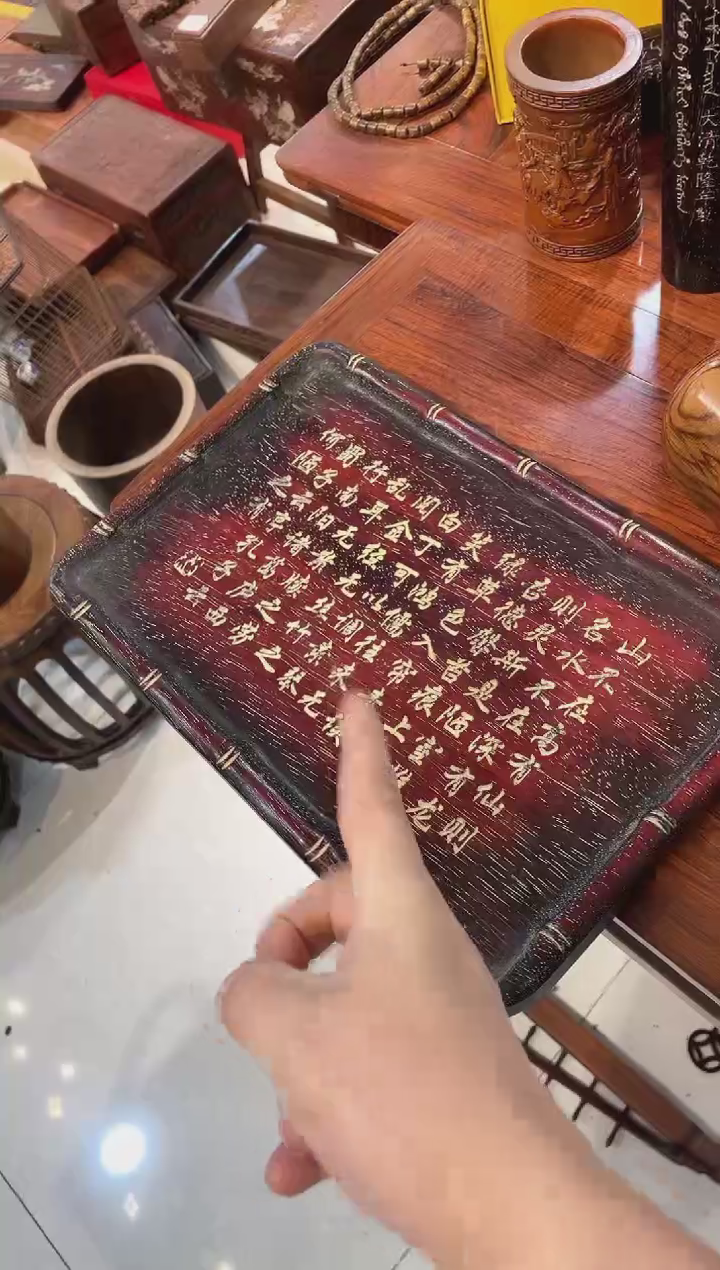 山不在高有仙则
名水不在深有龙
则灵斯是陋室
吾德馨苔痕上
绿草色入帘青
笑有鸿儒往来
白丁可以调素琴
阅金经无丝竹之
乱耳无案牍之劳
形南阳诸葛庐西
蜀子云亭孔子云
何陋之有
大清乾隆年